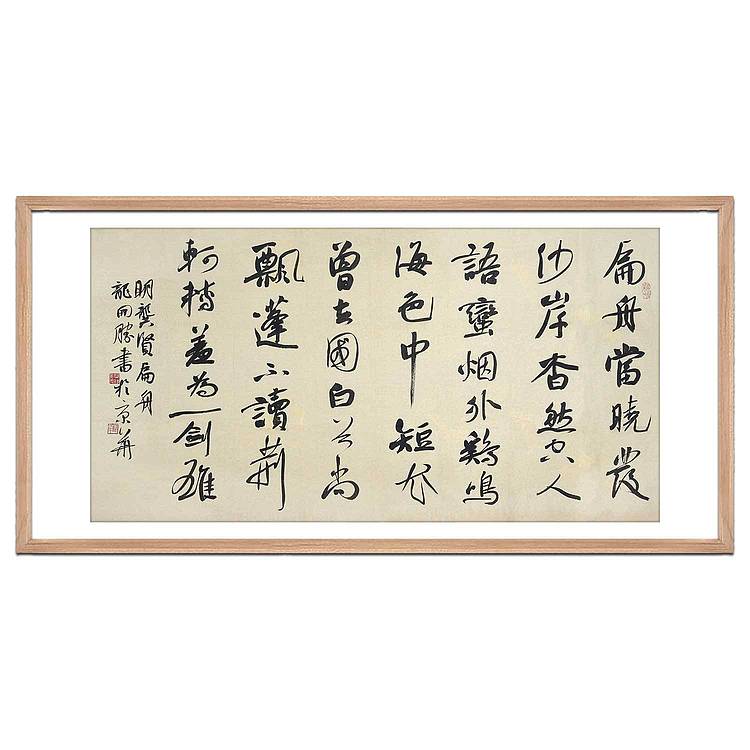 扁舟當曉發
沙岸杳然空人
語蠻烟外鷄鳴
海色中短衣
曾去國白首尚
飄蓬不讀荆
軻傳羞為一劍雄
明龔賢扁舟
龍開勝書於京華